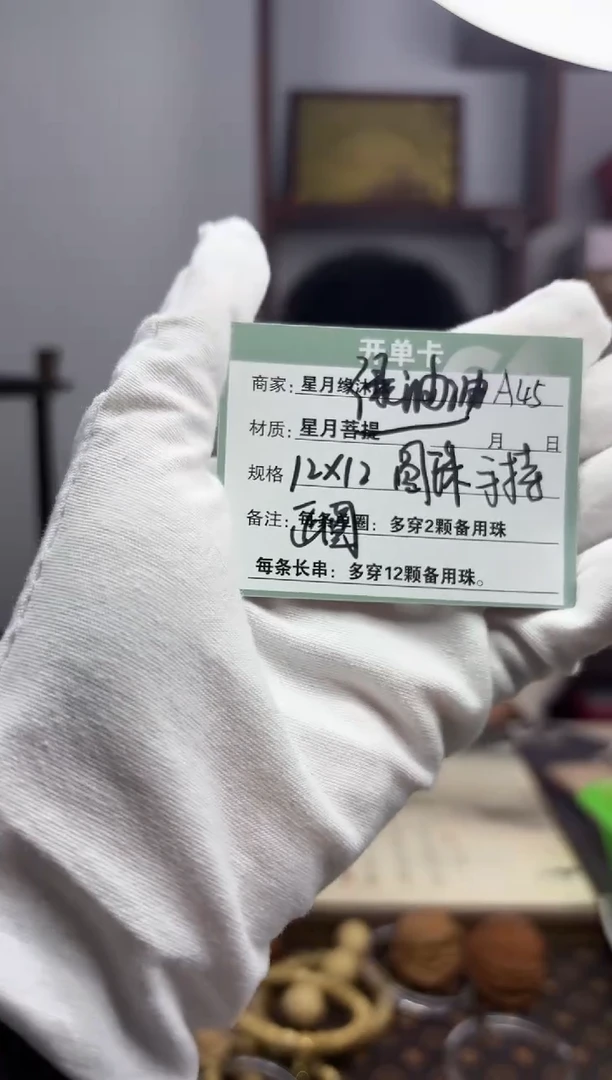 开单卡
商家：星月缘沐 A45
材质：星月菩提 月 日
规格 12X12 圆珠 手持
备注：每条单圈：多穿2颗备用珠
正圆
每条长串：多穿12颗备用珠。